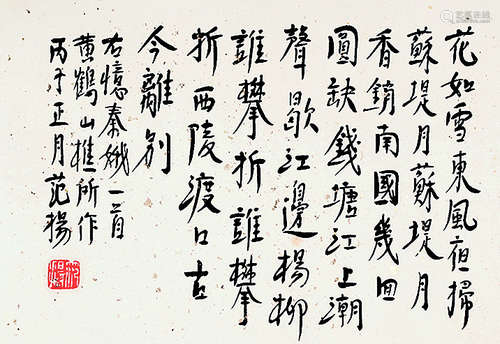 花如雪東風夜掃
蘇堤月蘇堤月
香銷南國幾回
圓缺錢塘江上潮
聲歇江邊楊柳
誰攀折誰攀
折西陵渡口古
今離別
右憶秦娥一首
黃鶴山樵所作
丙子正月范揚